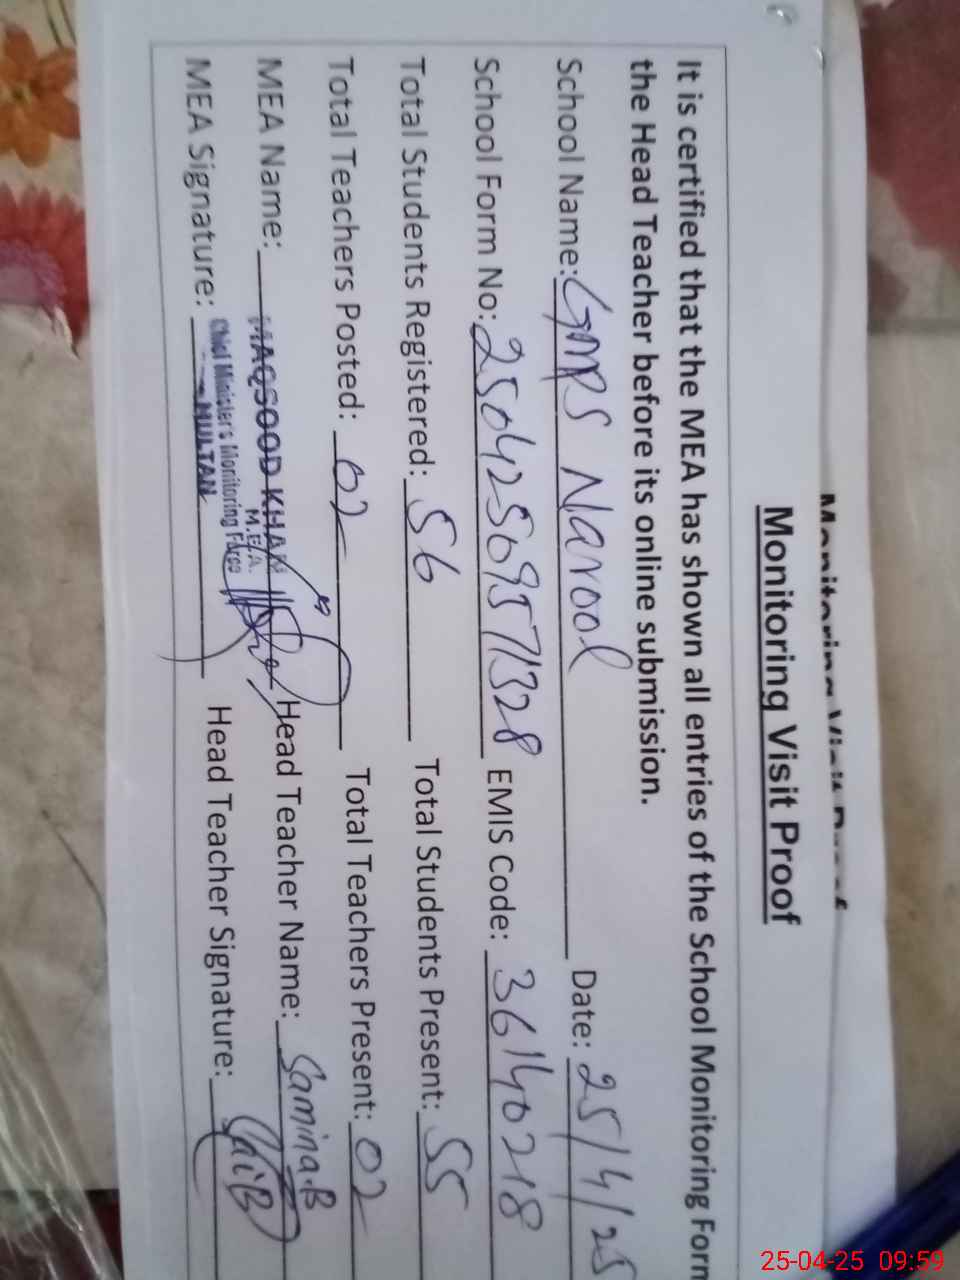 Monitoring Visit Proof
Monitoring Visit Proof
It is certified that the MEA has shown all entries of the School Monitoring Form
the Head Teacher before its online submission.
School Name: GMPS Narool Date: 25/4/25
School Form No: EMIS Code: 36140218
Total Students Registered: 56 Total Students Present: 55
Total Teachers Posted: 02 Total Teachers Present: 02
MEA Name: MAQSOOD KHAN Head Teacher Name: Samina.B
M.E.A.
Chief Minister's Monitoring Force
MEA Signature: MULTAN Head Teacher Signature:
25-04-25 09:59